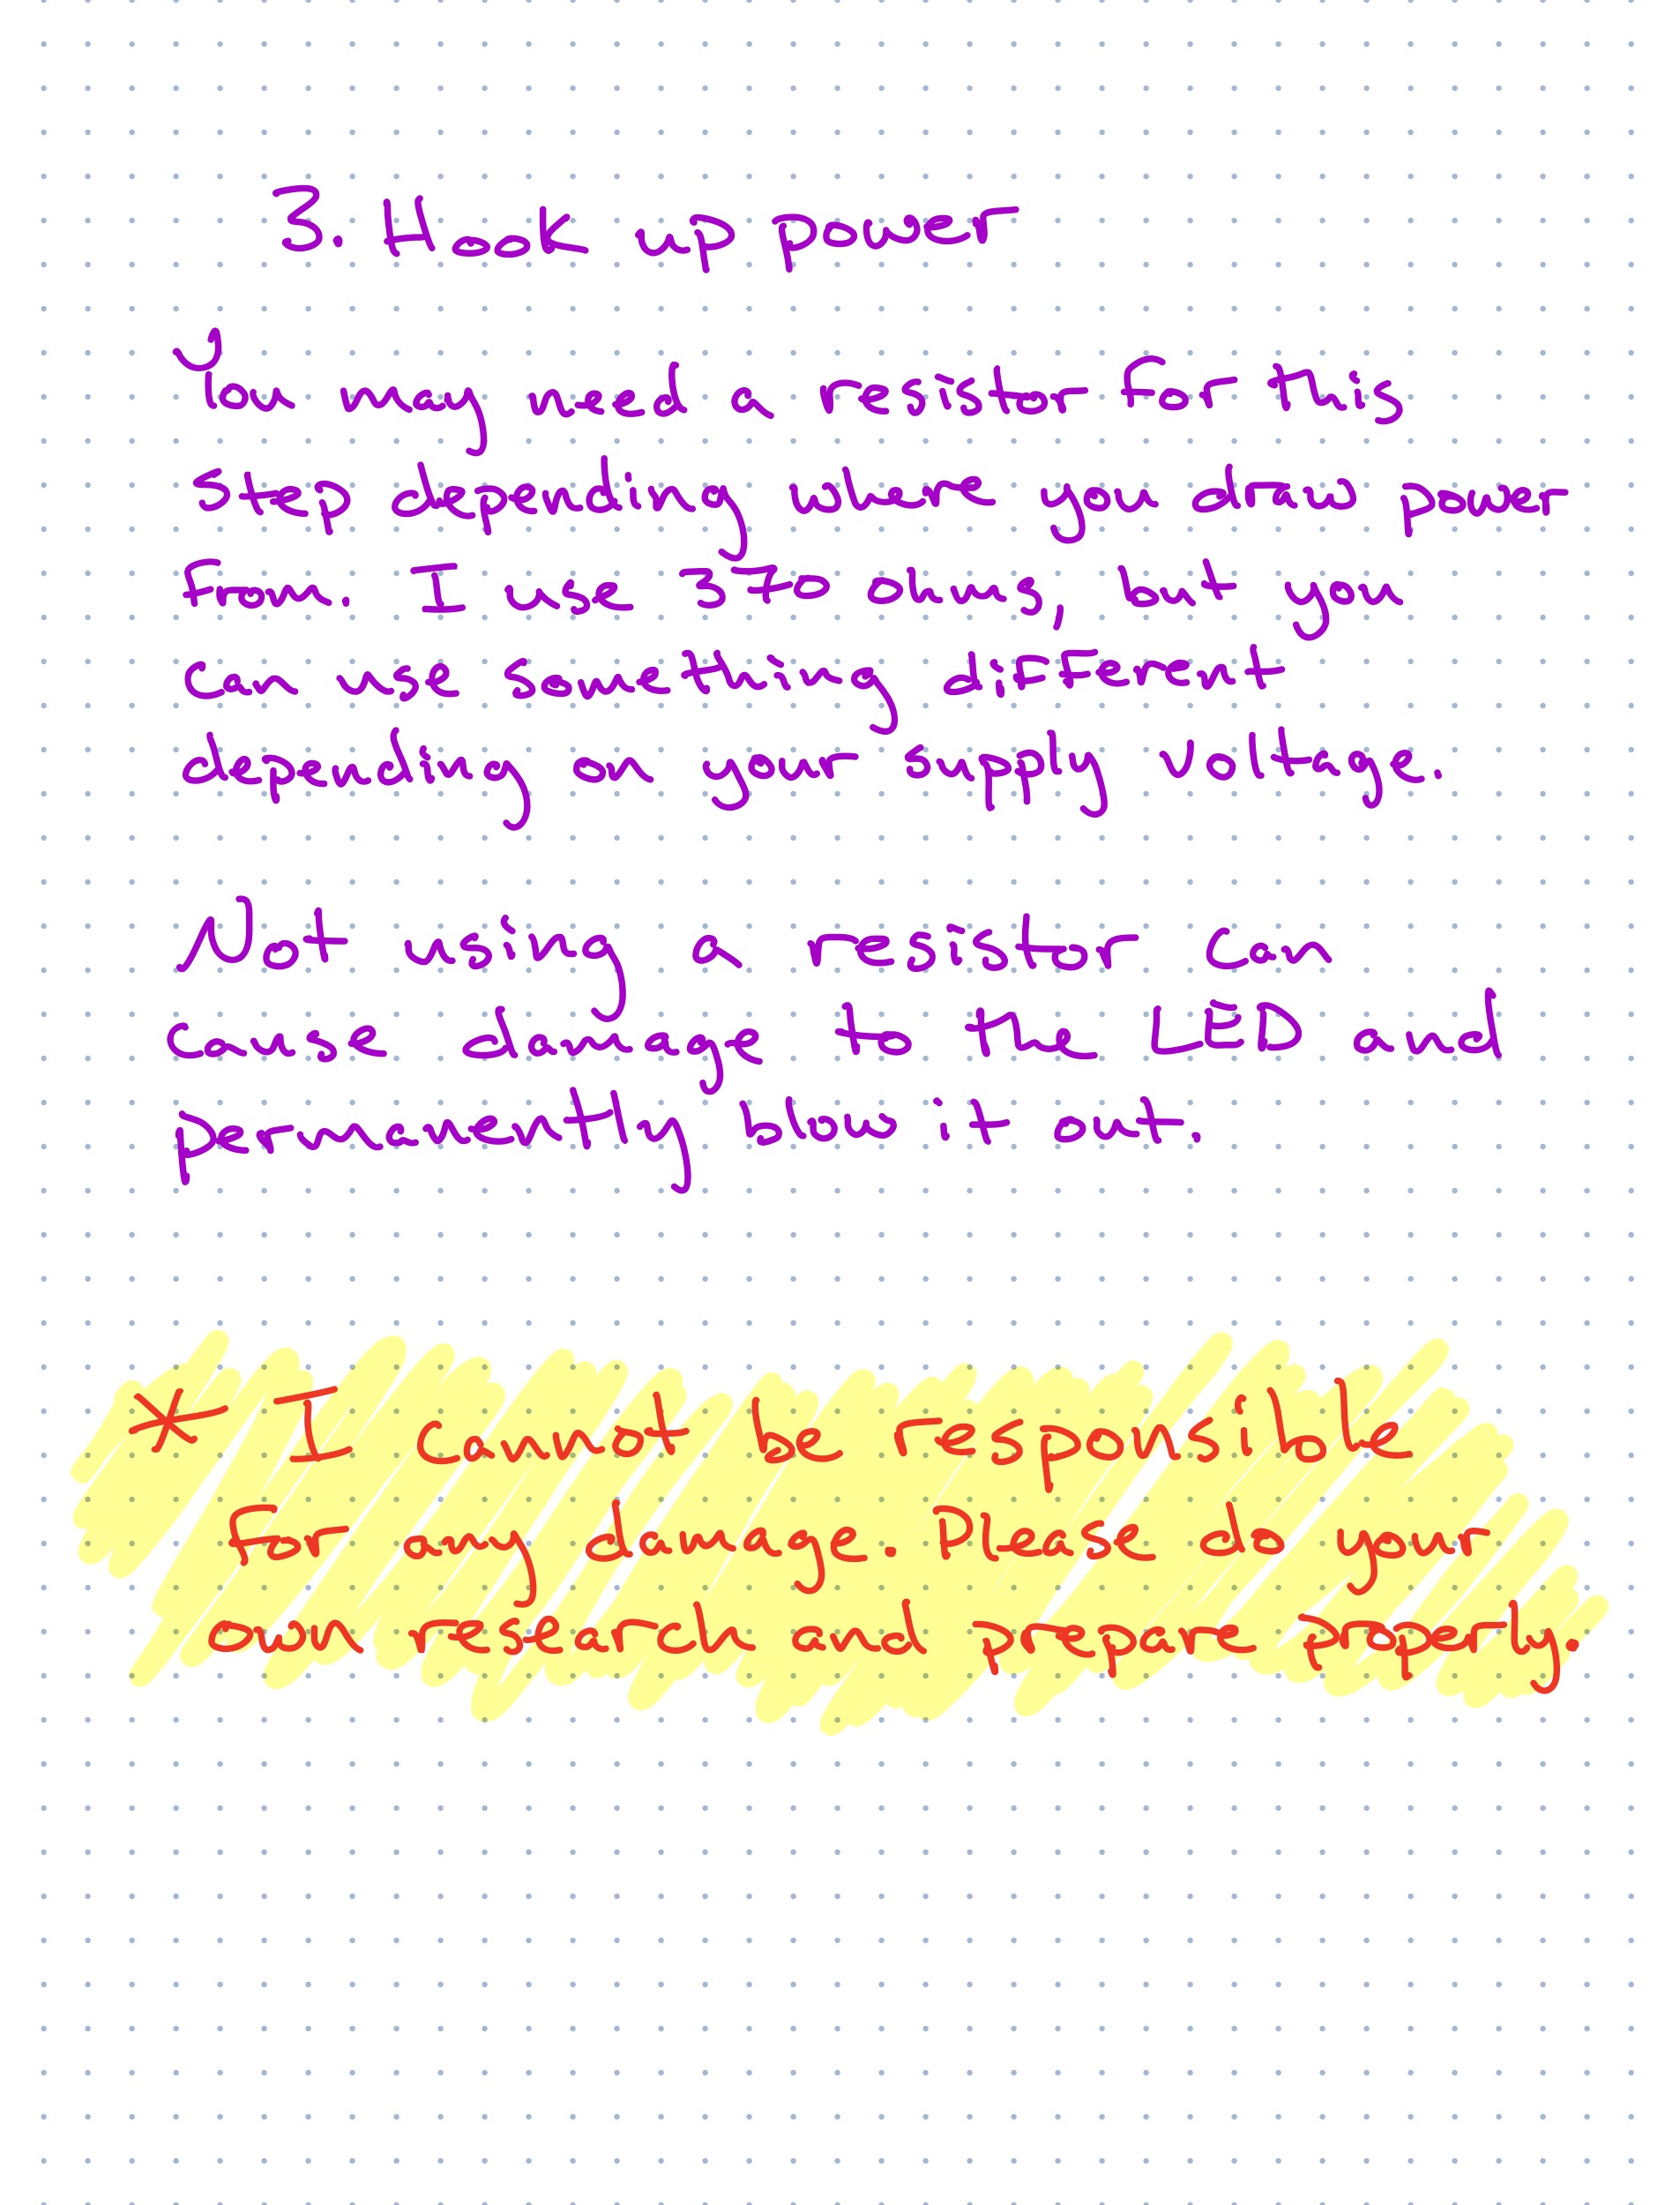 3. Hook up power
You may need a resistor for this
step depending where you draw power
from. I use 370 ohms, but you
can use something different
depending on your supply voltage.
Not using a resistor can
cause damage to the LED and
permanently blow it out.
* I cannot be responsible
for any damage. Please do your
own research and prepare properly.